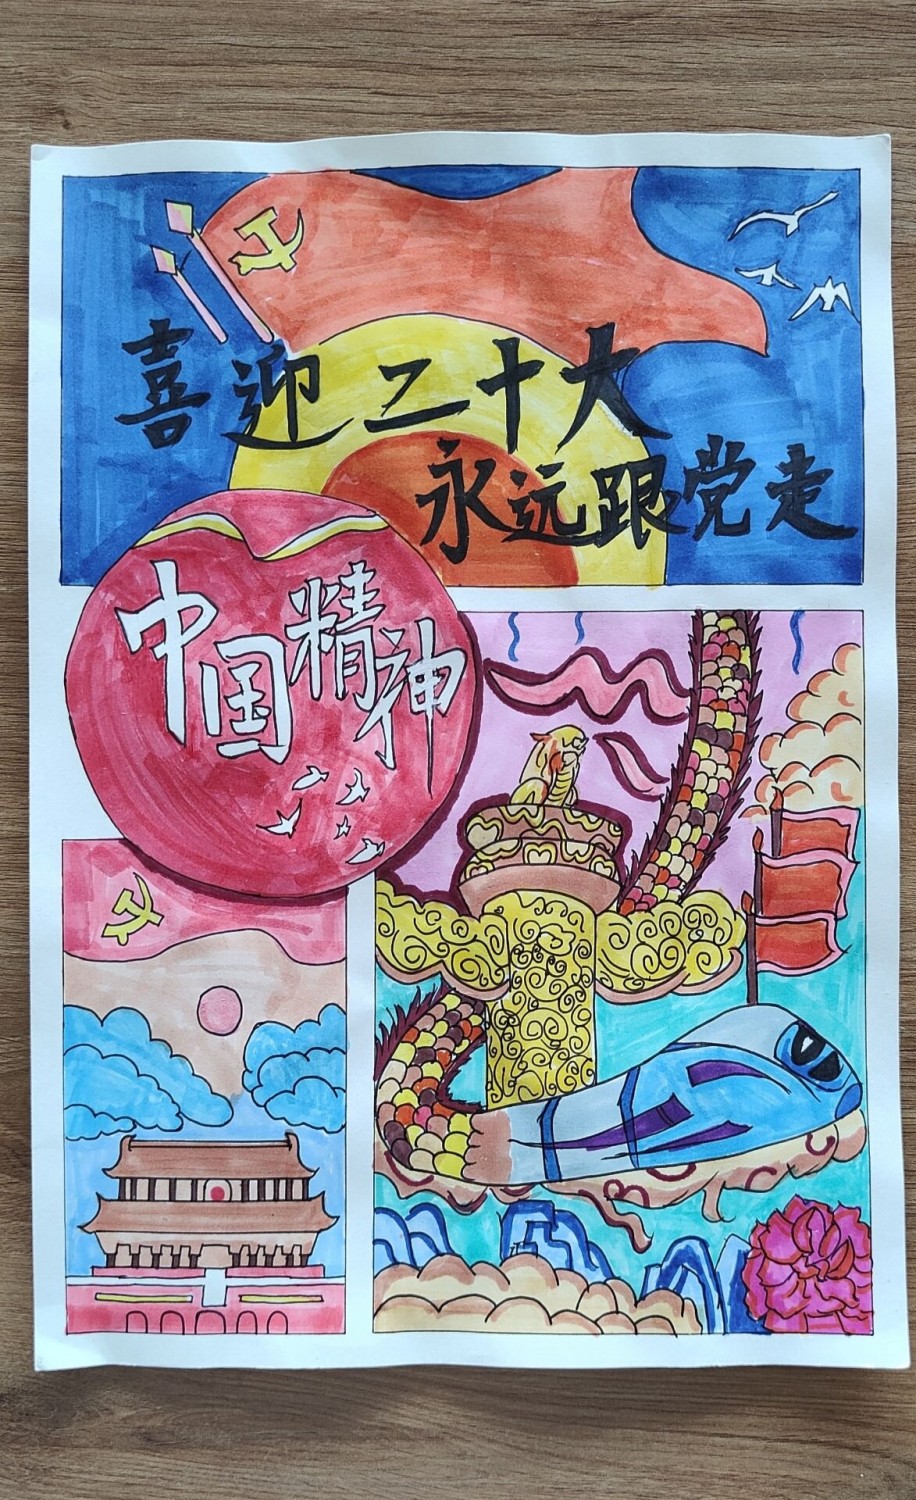 喜迎二十大
永远跟党走
中国精神